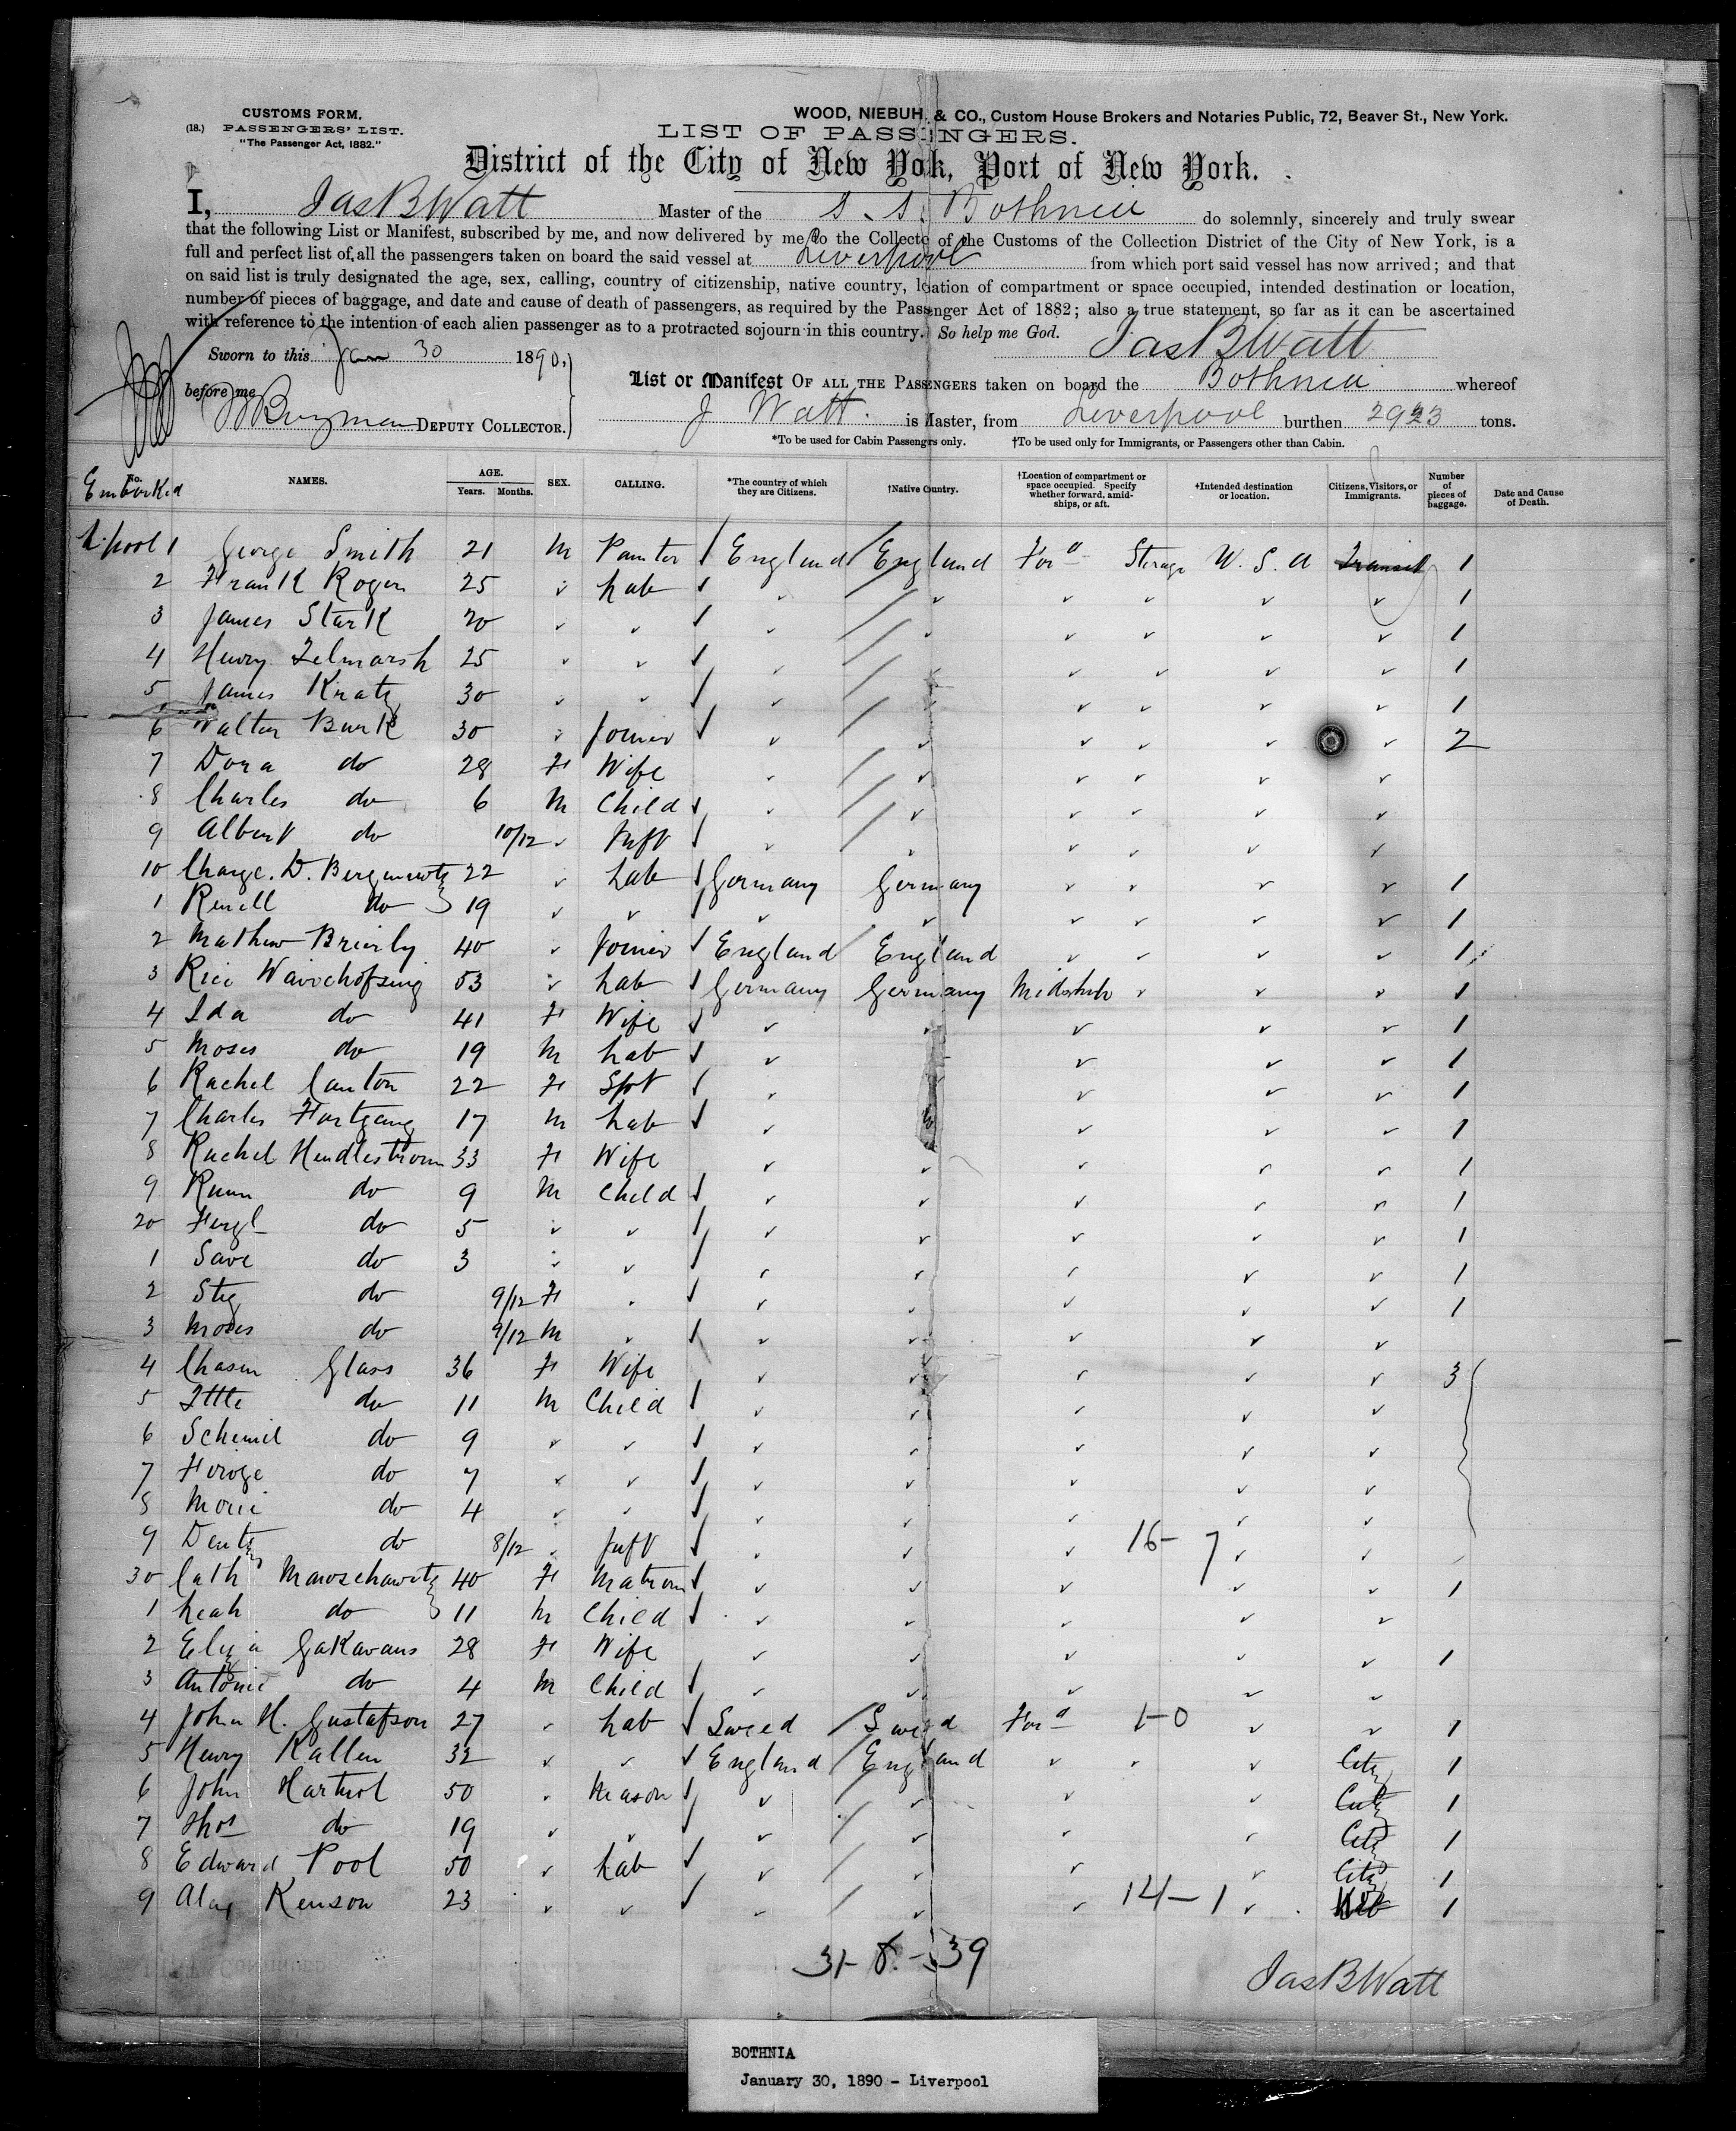 CUSTOMS FORM.
(18.) PASSENGERS' LIST.
"The Passenger Act, 1882."
WOOD, NIEBUH & CO., Custom House Brokers and Notaries Public, 72, Beaver St., New York.
LIST OF PASSENGERS.
District of the City of New Yok, Port of New York.
I, Jas B Watt Master of the S. S. Bothnia do solemnly, sincerely and truly swear
that the following List or Manifest, subscribed by me, and now delivered by me to the Collecto of the Customs of the Collection District of the City of New York, is a
full and perfect list of all the passengers taken on board the said vessel at Liverpool from which port said vessel has now arrived; and that
on said list is truly designated the age, sex, calling, country of citizenship, native country, location of compartment or space occupied, intended destination or location,
number of pieces of baggage, and date and cause of death of passengers, as required by the Passenger Act of 1882; also a true statement, so far as it can be ascertained
with reference to the intention of each alien passenger as to a protracted sojourn in this country. So help me God. Jas B Watt
Sworn to this Jan 30 1890,
before me DEPUTY COLLECTOR.
List or Manifest OF ALL THE PASSENGERS taken on board the Bothnia whereof
J Watt. is Master, from Liverpool burthen 2923 tons.
*To be used for Cabin Passengrs only. †To be used only for Immigrants, or Passengers other than Cabin.
No. NAMES. AGE. Years. Months. SEX. CALLING. *The country of which they are Citizens. †Native Country. †Location of compartment or space occupied. Specify whether forward, amidships, or aft. †Intended destination or location. Citizens, Visitors, or Immigrants. Number of pieces of baggage. Date and Cause of Death.
Embarked
L.pool 1 George Smith 21 M Painter England England For^d Sterage U.S.A Transit 1
2 Frank Rogen 25 " Lab 1
3 James Stark 20 1
4 Henry Zelmarsh 25 1
5 James Kratz 30 1
6 Walter Burk 30 Joiner 2
7 Dora do 28 F Wife
8 Charles do 6 M Child
9 Albert do 10/12 Inft
10 22 Lab Germany Germany 1
1 do 19 1
2 Mathew Brierly 40 Joiner England England 1
3 53 Lab Germany Germany Midship 1
4 Ida do 41 F Wife 1
5 Moses do 19 M Lab 1
6 Rachel Canton 22 F Spt 1
7 Charles Fortgang 17 M Lab 1
8 Rachel Hendlestrom 33 F Wife 1
9 do 9 M Child 1
20 do 5 1
1 Save do 3 1
2 do 9/12 F 1
3 Moses do 9/12 M
4 Chasm Glass 36 F Wife 3
5 Ittle do 11 M Child
6 Schimil do 9
7 do 7
8 do 4
9 do 8/12 Inft 16-7
30 Cath 40 F Matron 1
1 Leah do 11 M Child
2 Eliza Gakavans 28 F Wife 1
3 Antonie do 4 M Child
4 John H. Gustafson 27 Lab Sweed Sweed For^d 1-0 1
5 Henry Kallen 32 England England City 1
6 John 50 Mason City 1
7 Thos do 19 City 1
8 Edward Pool 50 Lab City 1
9 Kenson 23 14-1 1
31-8-39
Jas B Watt
BOTHNIA
January 30, 1890 - Liverpool